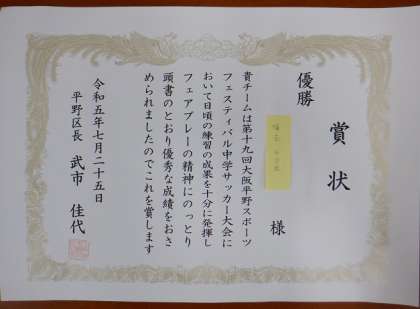 賞状
優勝
様
貴チームは第十九回大阪平野スポーツ
フェスティバル中学サッカー大会に
おいて日頃の練習の成果を十分に発揮し
フェアプレーの精神にのっとり
頭書のとおり優秀な成績をおさ
められましたのでこれを賞します
令和五年七月二十五日
平野区長 武市 佳代